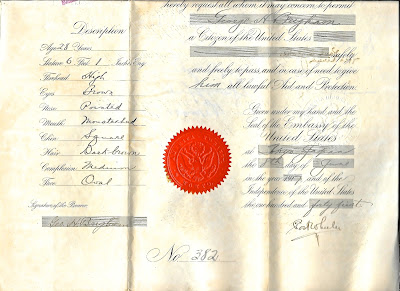 Description
Age 28 Years
Stature 6 Feet 1 Inches Eng
Forehead High
Eyes Brown
Nose Pointed
Mouth Moustached
Chin Square
Hair Dark brown
Complexion Medium
Face Oval
Signature of the Bearer
Geo. H.
hereby request all whom it may concern to permit
George H.
a Citizen of the United States
safely
and freely to pass, and in case of need to give
him all lawful Aid and Protection.
Given under my hand and the
Seal of the Embassy of the
United States
at
the day of June
in the year and of the
Independence of the United States
the one hundred and forty first
No. 382